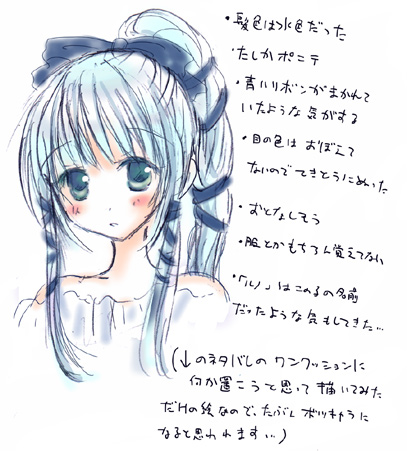 ・髪色は水色だった
・たしかポニテ
・青いリボンがまかれて
いたような気がする
・目の色はおぼえて
ないのでてきとうにぬった
・おとなしそう
・服とかもちろん覚えてない
・「ルノ」はこのこの名前
だったような気もしてきた…
(↓のネタバレのワンクッションに
何か置こうと思って描いてみた
だけの絵なので、たぶんボツキャラに
なると思われます…)